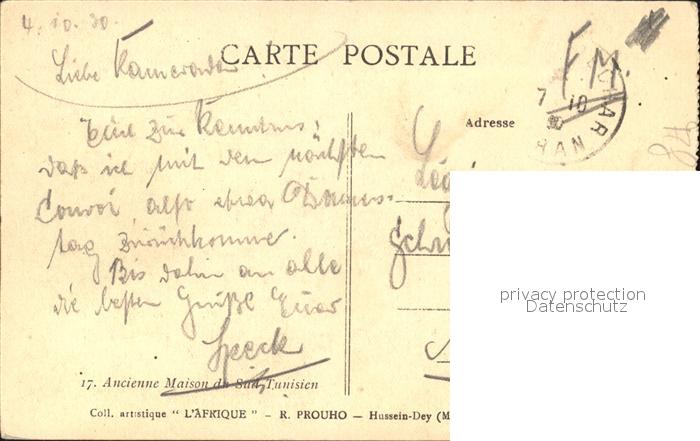 4. 10. 30.
CARTE POSTALE
F. M.
Liebe Kameraden
7 10
Adresse
Euch zur Kenntnis,
daß ich mit dem nächsten
Convoi, also etwa Donners-
tag zurückkomme.
Bis dahin an alle
die besten Grüße Euer
privacy protection
Datenschutz
17. Ancienne Maison du Sud Tunisien
Coll. artistique " L'AFRIQUE " — R. PROUHO — Hussein-Dey (M